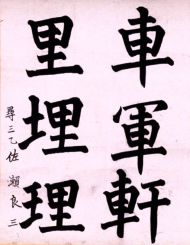 車軍軒
里埋理
尋三乙佐瀬良三